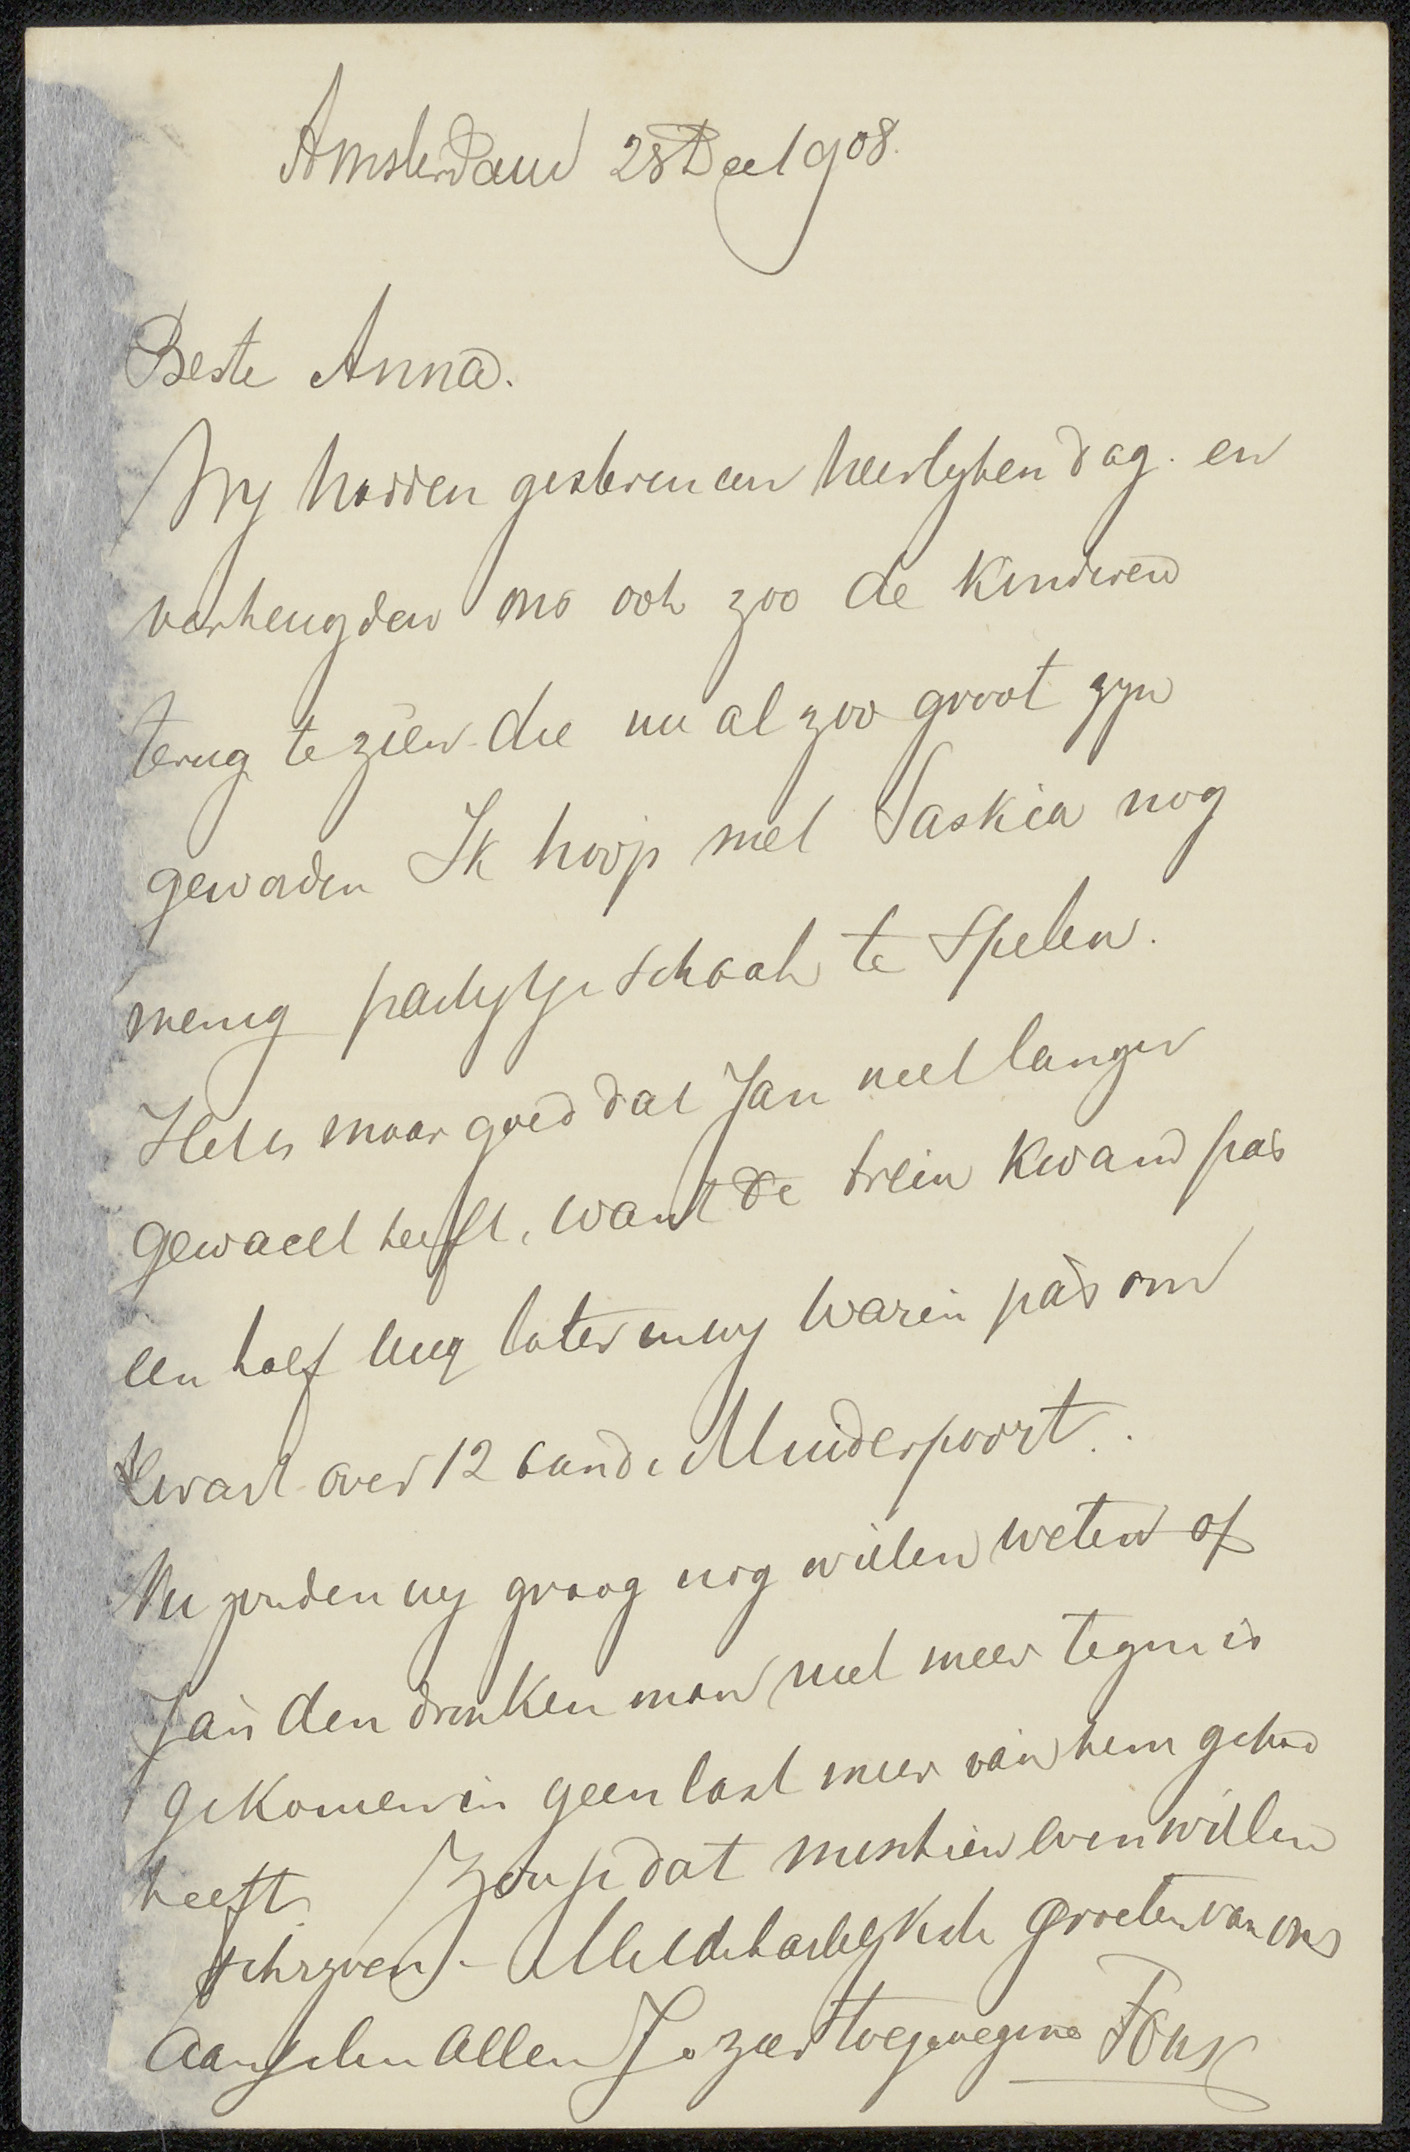 Amsterdam 28 Dec 1908.
Beste Anna.
Wy hadden gisteren een heerlyken dag. en
verheugden ons ook zoo de kinderen
terug te zien die nu al zoo groot zyn
geworden Ik hoop met Saskia nog
menig partytje schaak te spelen.
Het is maar goed dat Jan niet langer
gewacht heeft, want de trein kwam pas
een half uur later en wy waren pas om
kwart over 12 aan de Muiderpoort.
Nu zouden wy graag nog willen weten of
Jan den dronken man niet meer tegen is
gekomen en geen last meer van hem gehad
heeft. Zou je dat misschien even willen
schryven. - Met de hartelykste groeten van ons
aan jelui allen Je zeer toegenegene Fons